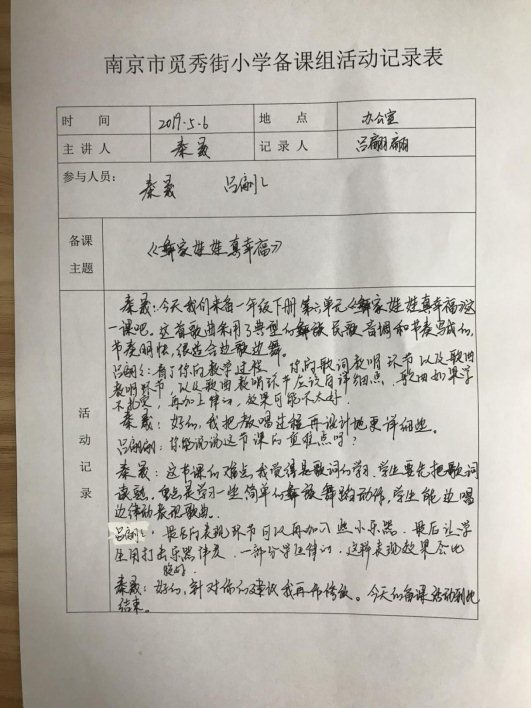 南京市觅秀街小学备课组活动记录表
时 间 2019.5.6 地 点 办公室
主 讲 人 秦晟 记 录 人 吕翩翩
参与人员: 秦晟 吕翩翩
备课
主题 《彝家娃娃真幸福》
活动记录
秦晟:今天我们来备一年级下册第六单元《彝家娃娃真幸福》这
一课吧,这首歌曲采用了典型的彝族民歌音调和节奏写成的,
节奏明快,很适合边歌边舞。
吕翩翩:看了你的教学过程 你的歌词教唱环节以及歌曲
教唱环节,以及歌曲教唱环节应设计详细点,歌曲如果学
不扎实,再加上律动,效果可能不太好。
秦晟:好的,我把教唱过程再设计地更详细些。
吕翩翩:你能说说这节课的重难点吗?
秦晟:这节课的难点,我觉得是歌词的学习,学生要先把歌词
读熟,重点是学习一些简单的彝族舞蹈动作,学生能边唱
边律动表现歌曲。
吕翩翩:最后的表现环节可以再加入些小乐器,最后让学
生用打击乐器伴奏,一部分学生律动,这样表现效果会比
较好。
秦晟:好的,针对你们的建议我再作修改。今天的备课活动到此
结束。